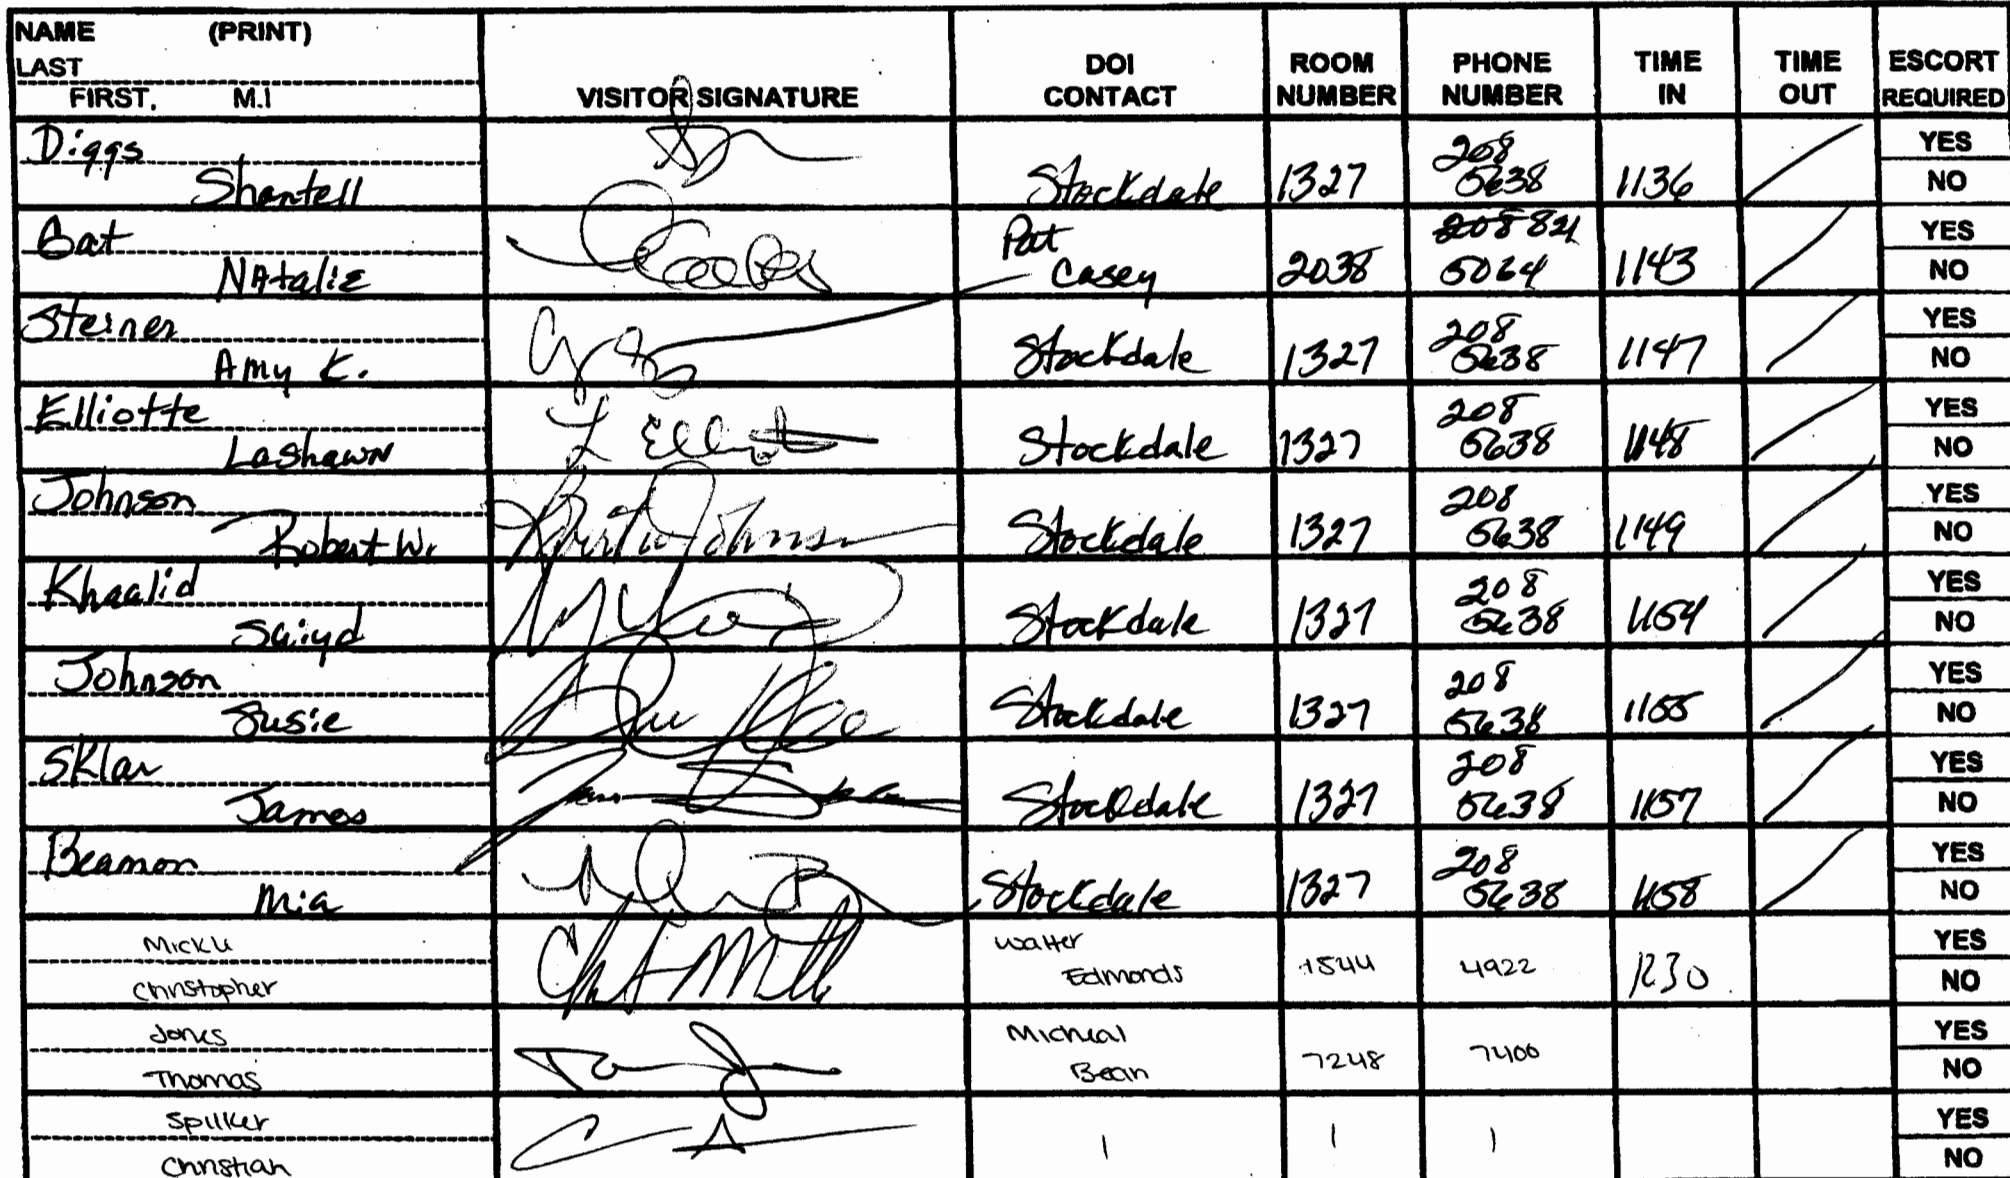 NAME (PRINT)
LAST
FIRST, M.I
VISITOR SIGNATURE
DOI CONTACT
ROOM NUMBER
PHONE NUMBER
TIME IN
TIME OUT
ESCORT REQUIRED
Diggs
Shantell
Stockdale 1327 208 5638 1136 YES NO
Natalie
Pat Casey 2038 5064 1143 YES NO
Steiner
Amy K.
Stockdale 1327 208 5638 1147 YES NO
Elliotte
Lashawn
L Elliott
Stockdale 1327 208 5638 1148 YES NO
Johnson
Robert W.
Johnson
Stockdale 1327 208 5638 1149 YES NO
Khaalid
Saiyd
Stockdale 1327 208 5638 1154 YES NO
Johnson
Susie
Stockdale 1327 208 5638 1155 YES NO
Sklar
James
Stockdale 1327 208 5638 1157 YES NO
Beamon
Mia
Stockdale 1327 208 5638 1158 YES NO
Christopher
Walter Edmonds 1544 4922 1230 YES NO
Jones
Thomas
Micheal Bean 7248 7400 YES NO
Spilker
Christian
YES NO